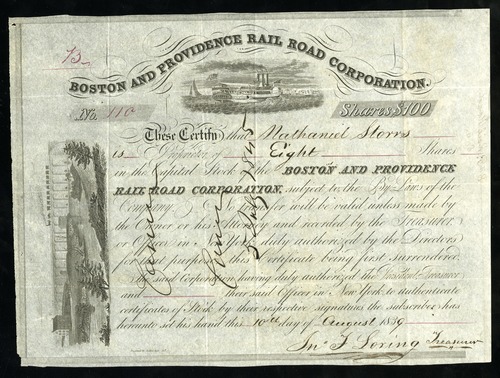 BOSTON AND PROVIDENCE RAIL ROAD CORPORATION.
No. 110
Shares $100
These Certify that Nathaniel Storrs
is Proprietor of Eight Shares
in the Capital Stock of the BOSTON AND PROVIDENCE
RAIL ROAD CORPORATION, subject to the By-Laws of the
Company. No transfer will be valid unless made by
the Owner or his Attorney and recorded by the Treasurer
or Officer in N. York duly authorized by the Directors
for that purpose, this Certificate being first Surrendered.
The said Corporation having duly authorized the President, Treasurer
and their said Officer in New York to authenticate
certificates of Stock by their respective signatures the subscriber has
hereunto set his hand this 10th day of August 1839
Jn° F. Loring Treasurer
5 July 1845